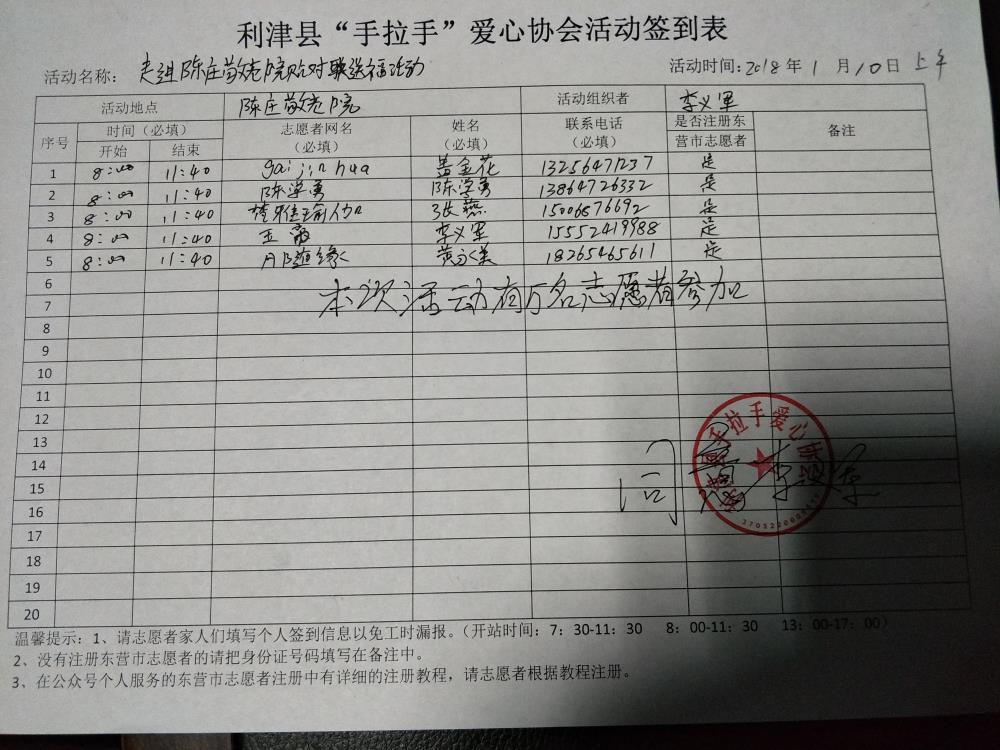 利津县“手拉手”爱心协会活动签到表
活动名称：走进陈庄敬老院贴对联送福活动 活动时间：2018年1月10日上午
活动地点 陈庄敬老院 活动组织者 李义军
序号 时间（必填） 志愿者网名（必填） 姓名（必填） 联系电话（必填） 是否注册东营市志愿者 备注
开始 结束
1 8:00 11:40 gaijinhua 盖金花 13256471237 是
2 8:00 11:40 陈学勇 陈学勇 13864726332 是
3 8:00 11:40 张燕 15006876692 是
4 8:00 11:40 李义军 15552419988 是
5 8:00 11:40 黄永美 18265465611 是
6
本次活动有5名志愿者参加
7
8
9
10
11
12
13
14
15
16
17
18
19
20
手拉手爱心协会
同意 李义军
温馨提示：1、请志愿者家人们填写个人签到信息以免工时漏报。（开站时间：7：30-11：30 8：00-11：30 13：00-17：00）
2、没有注册东营市志愿者的请把身份证号码填写在备注中。
3、在公众号个人服务的东营市志愿者注册中有详细的注册教程，请志愿者根据教程注册。